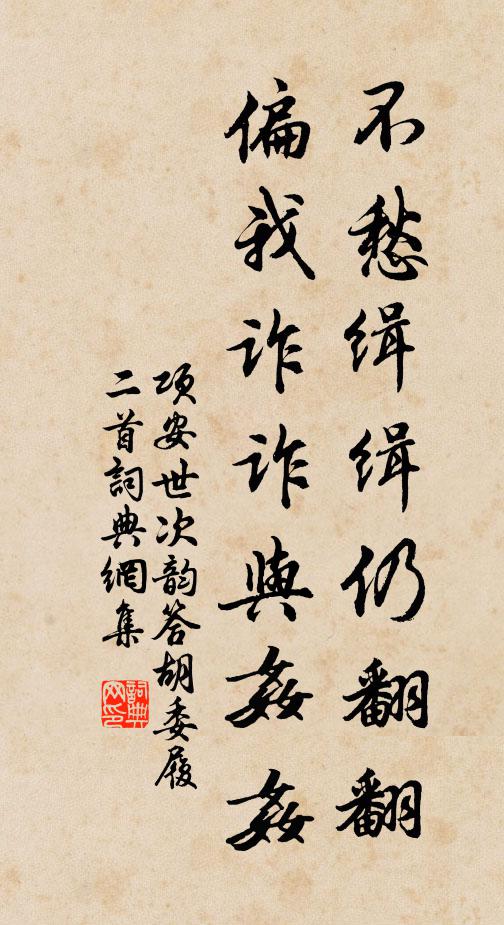 不愁缉缉仍翻翻
偏我诈诈與姦姦
项安世次韵答胡委履
二首詞典網集
詞典网印